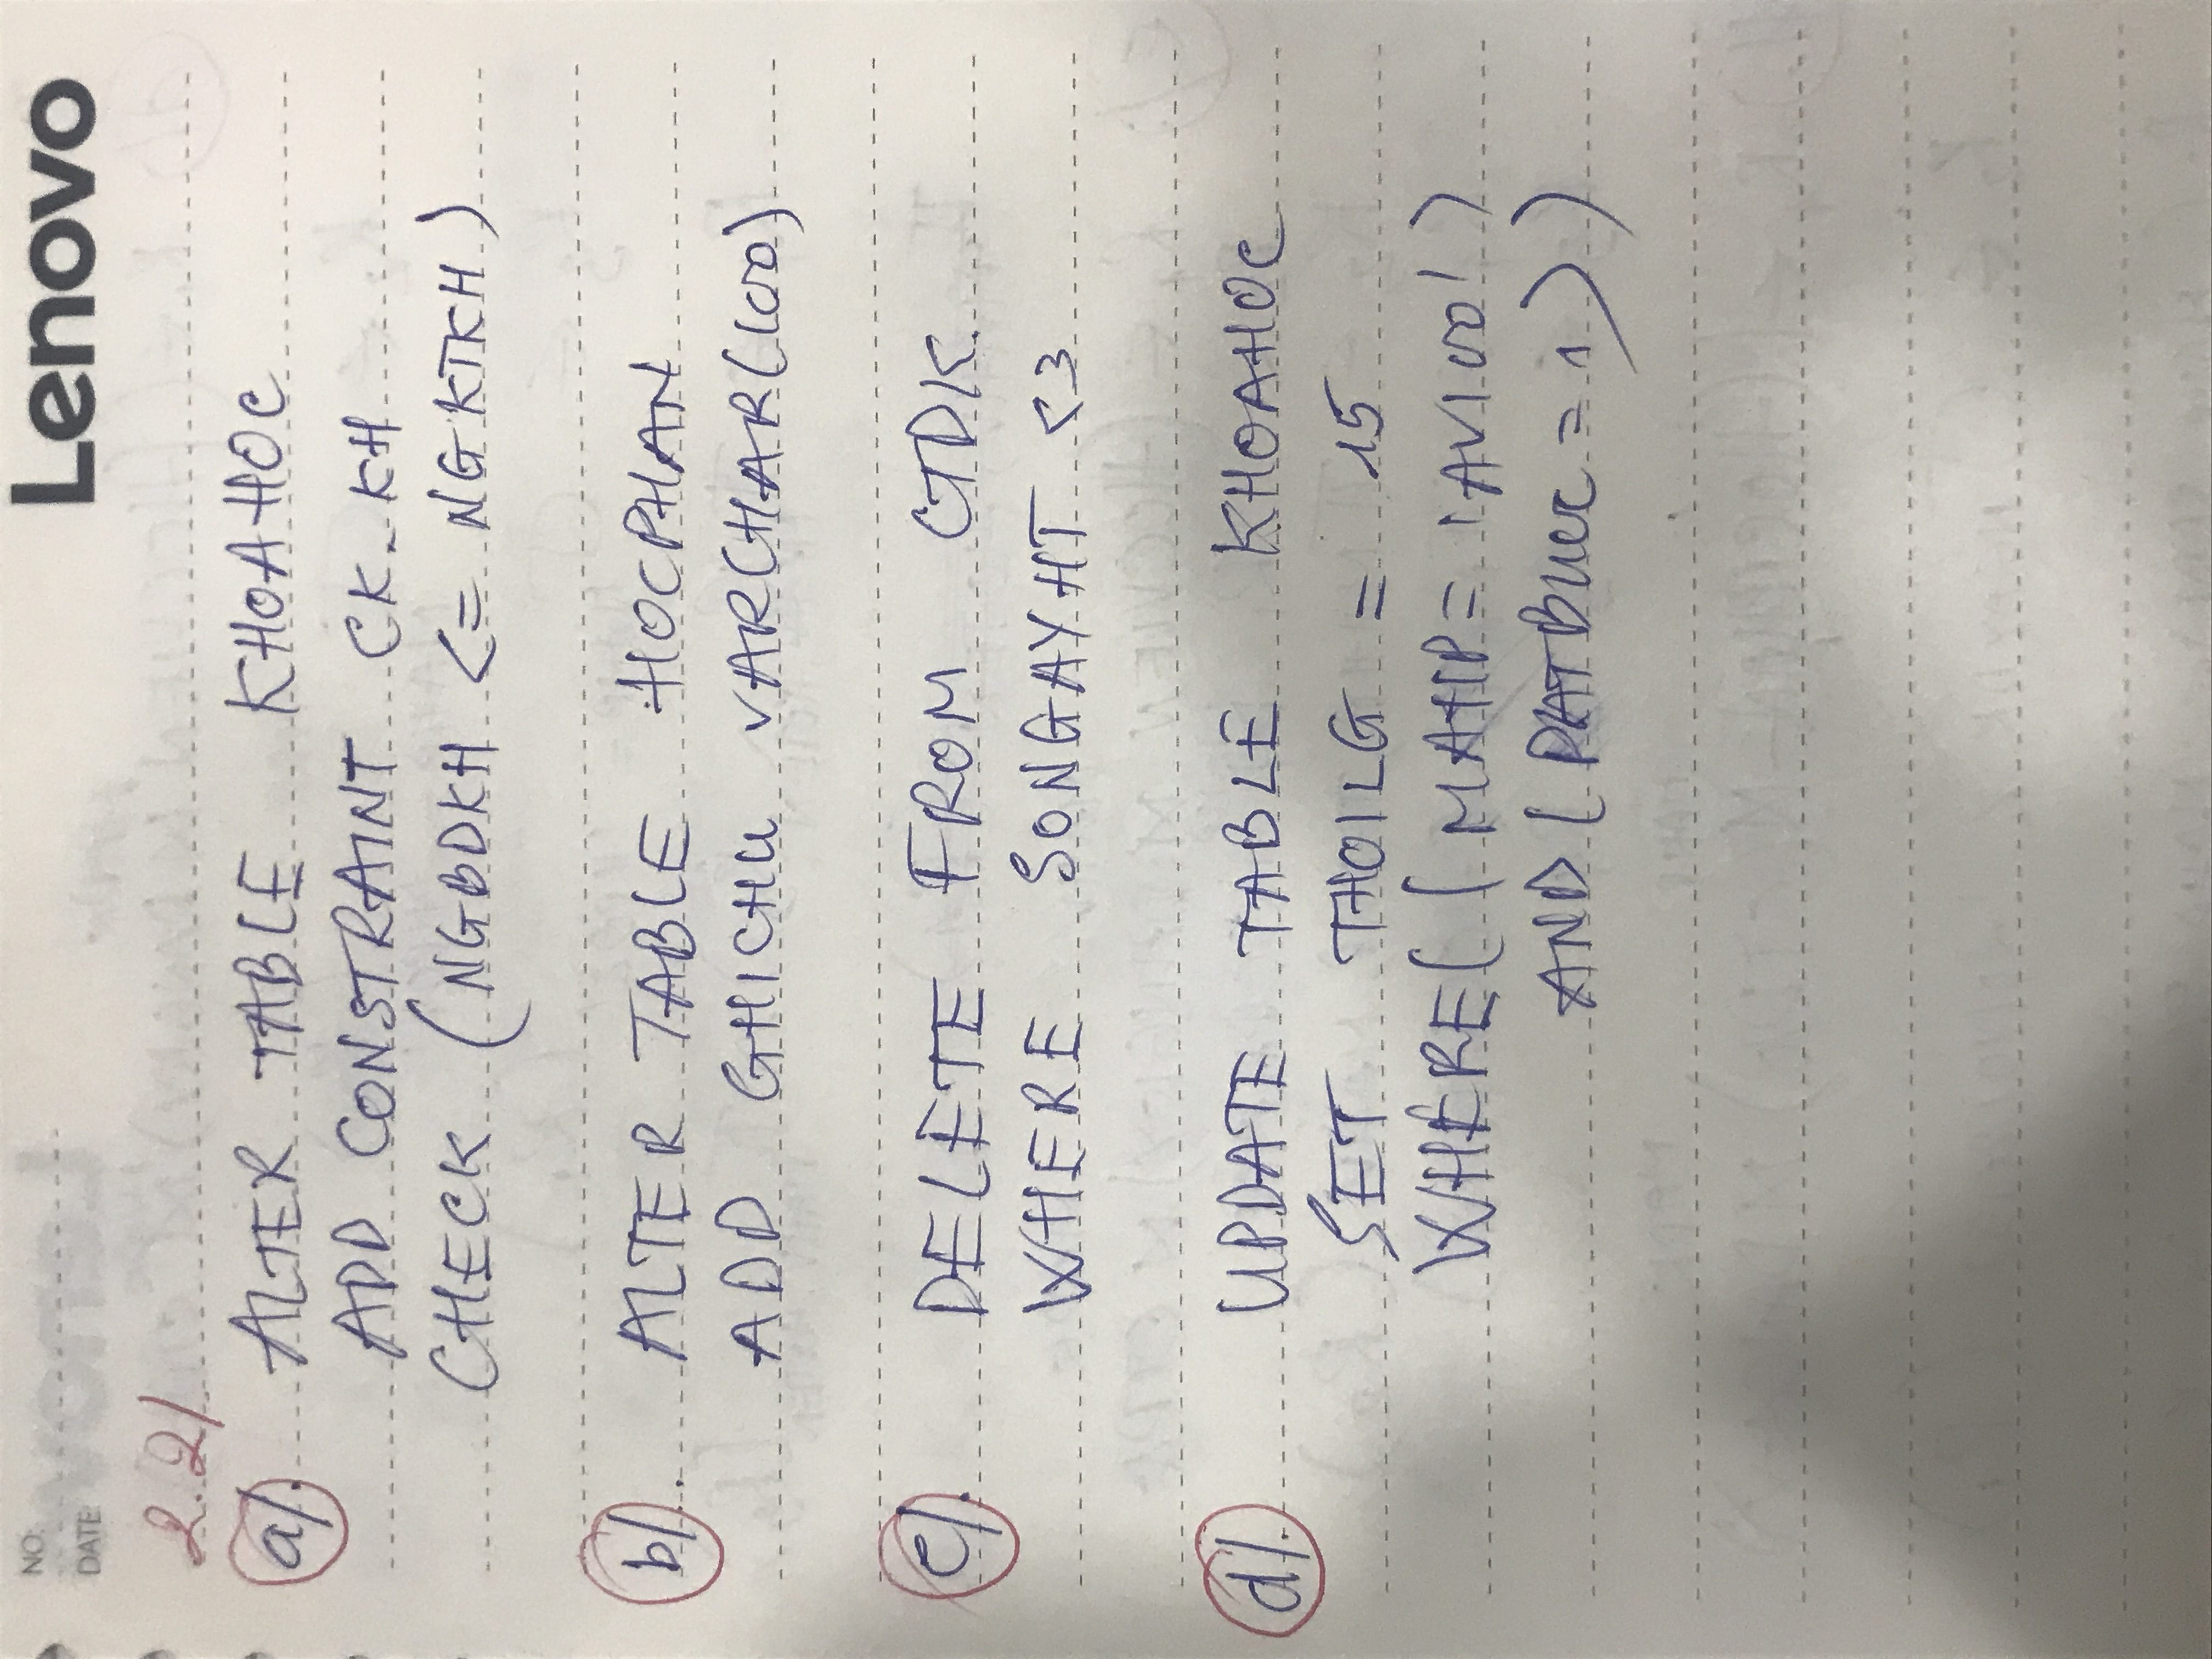 NO:
DATE:
Lenovo
2.2/.
a/. ALTER TABLE KHOAHOC
ADD CONSTRAINT CK_KH
CHECK (NGBDKH <= NGKTKH)
b/. ALTER TABLE HOCPHAN
ADD GHICHU VARCHAR(100)
c/. DELETE FROM CTDK
WHERE SONGAYHT <3
d/. UPDATE TABLE KHOAHOC
SET THOILG = 15
WHERE((MAHP= 'AV100')
AND( = 1))